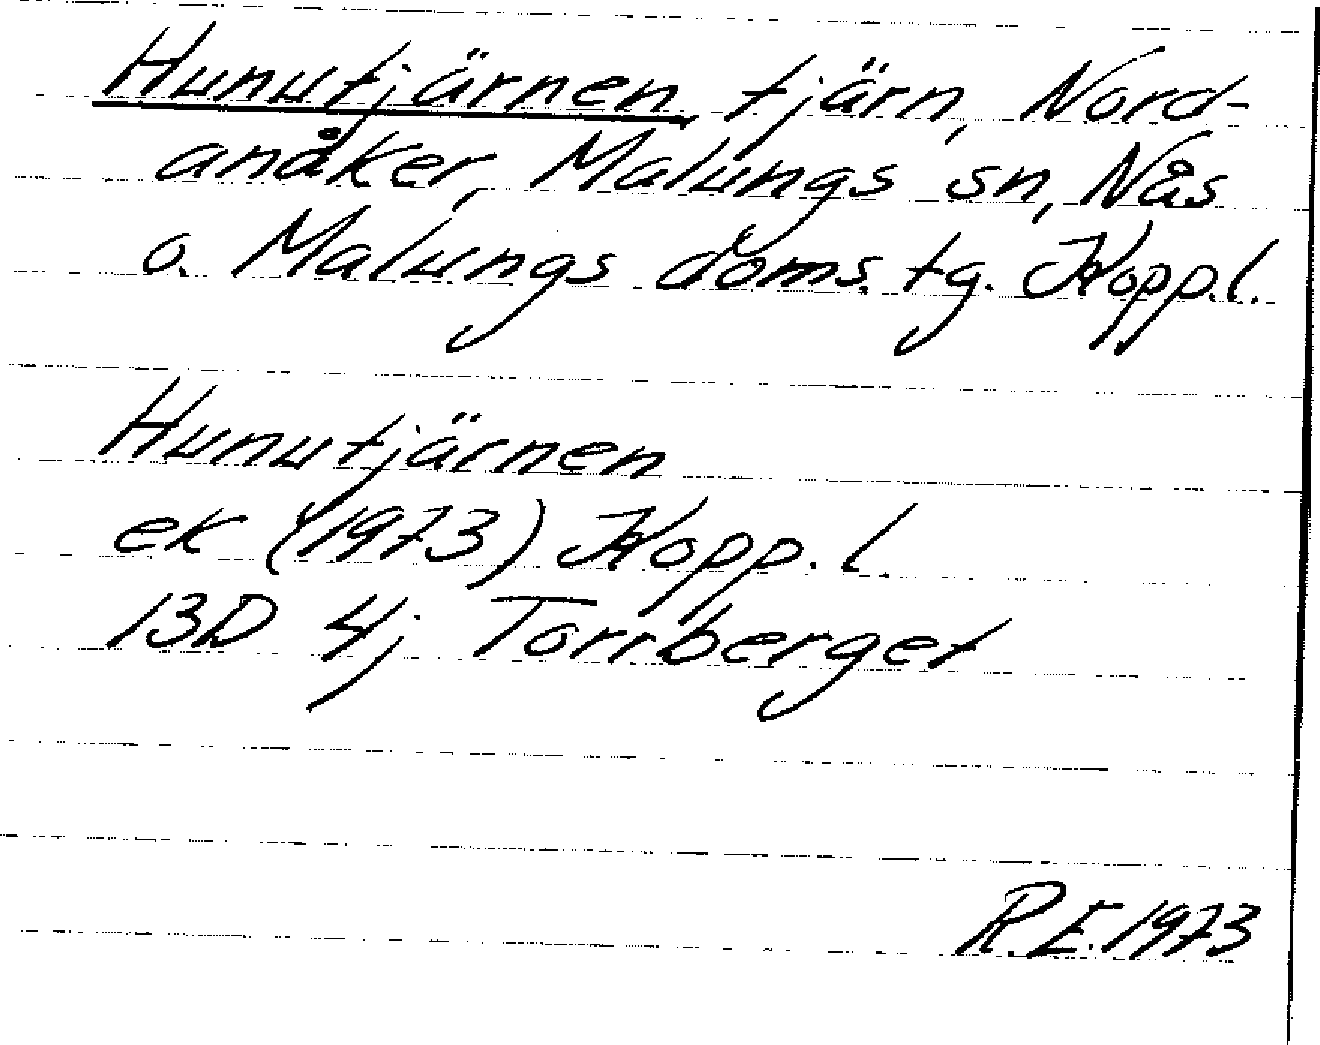 Hunutjärnen, tjärn, Nord-
anåker, Malungs sn, Nås
o. Malungs doms. tg. Kopp.l.
Hunutjärnen
ek (1973) Kopp. l
13D 4j Torrberget
R.E. 1973